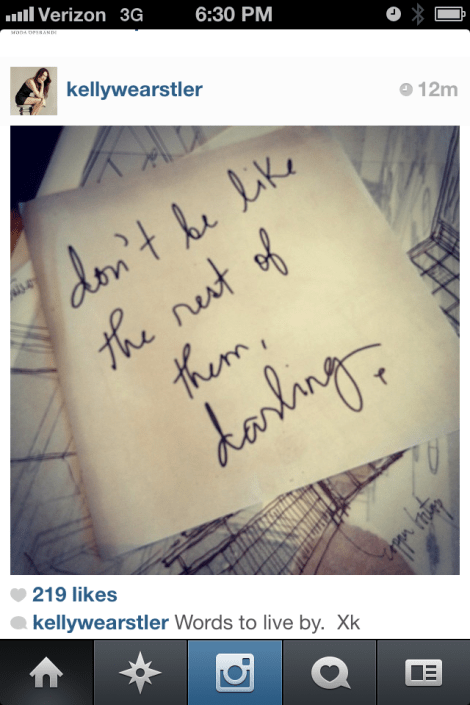 Verizon 3G 6:30 PM
MODA OPERANDI
kellywearstler 12m
don't be like
the rest of
them,
darling.
219 likes
kellywearstler Words to live by. Xk